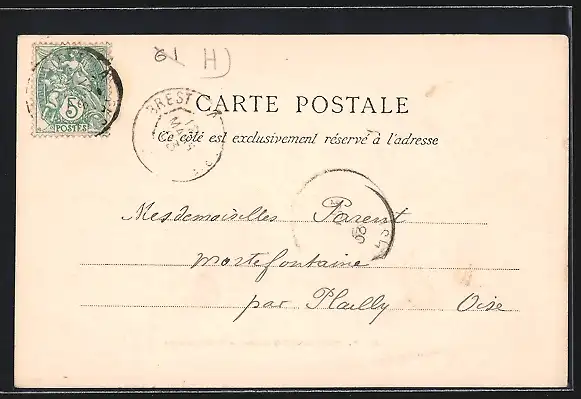 61 H)
5c
POSTES
BREST A
MARS
CARTE POSTALE
Ce côté est exclusivement réservé à l'adresse
Mesdemoiselles Parent
Mortefontaine
par Plailly Oise